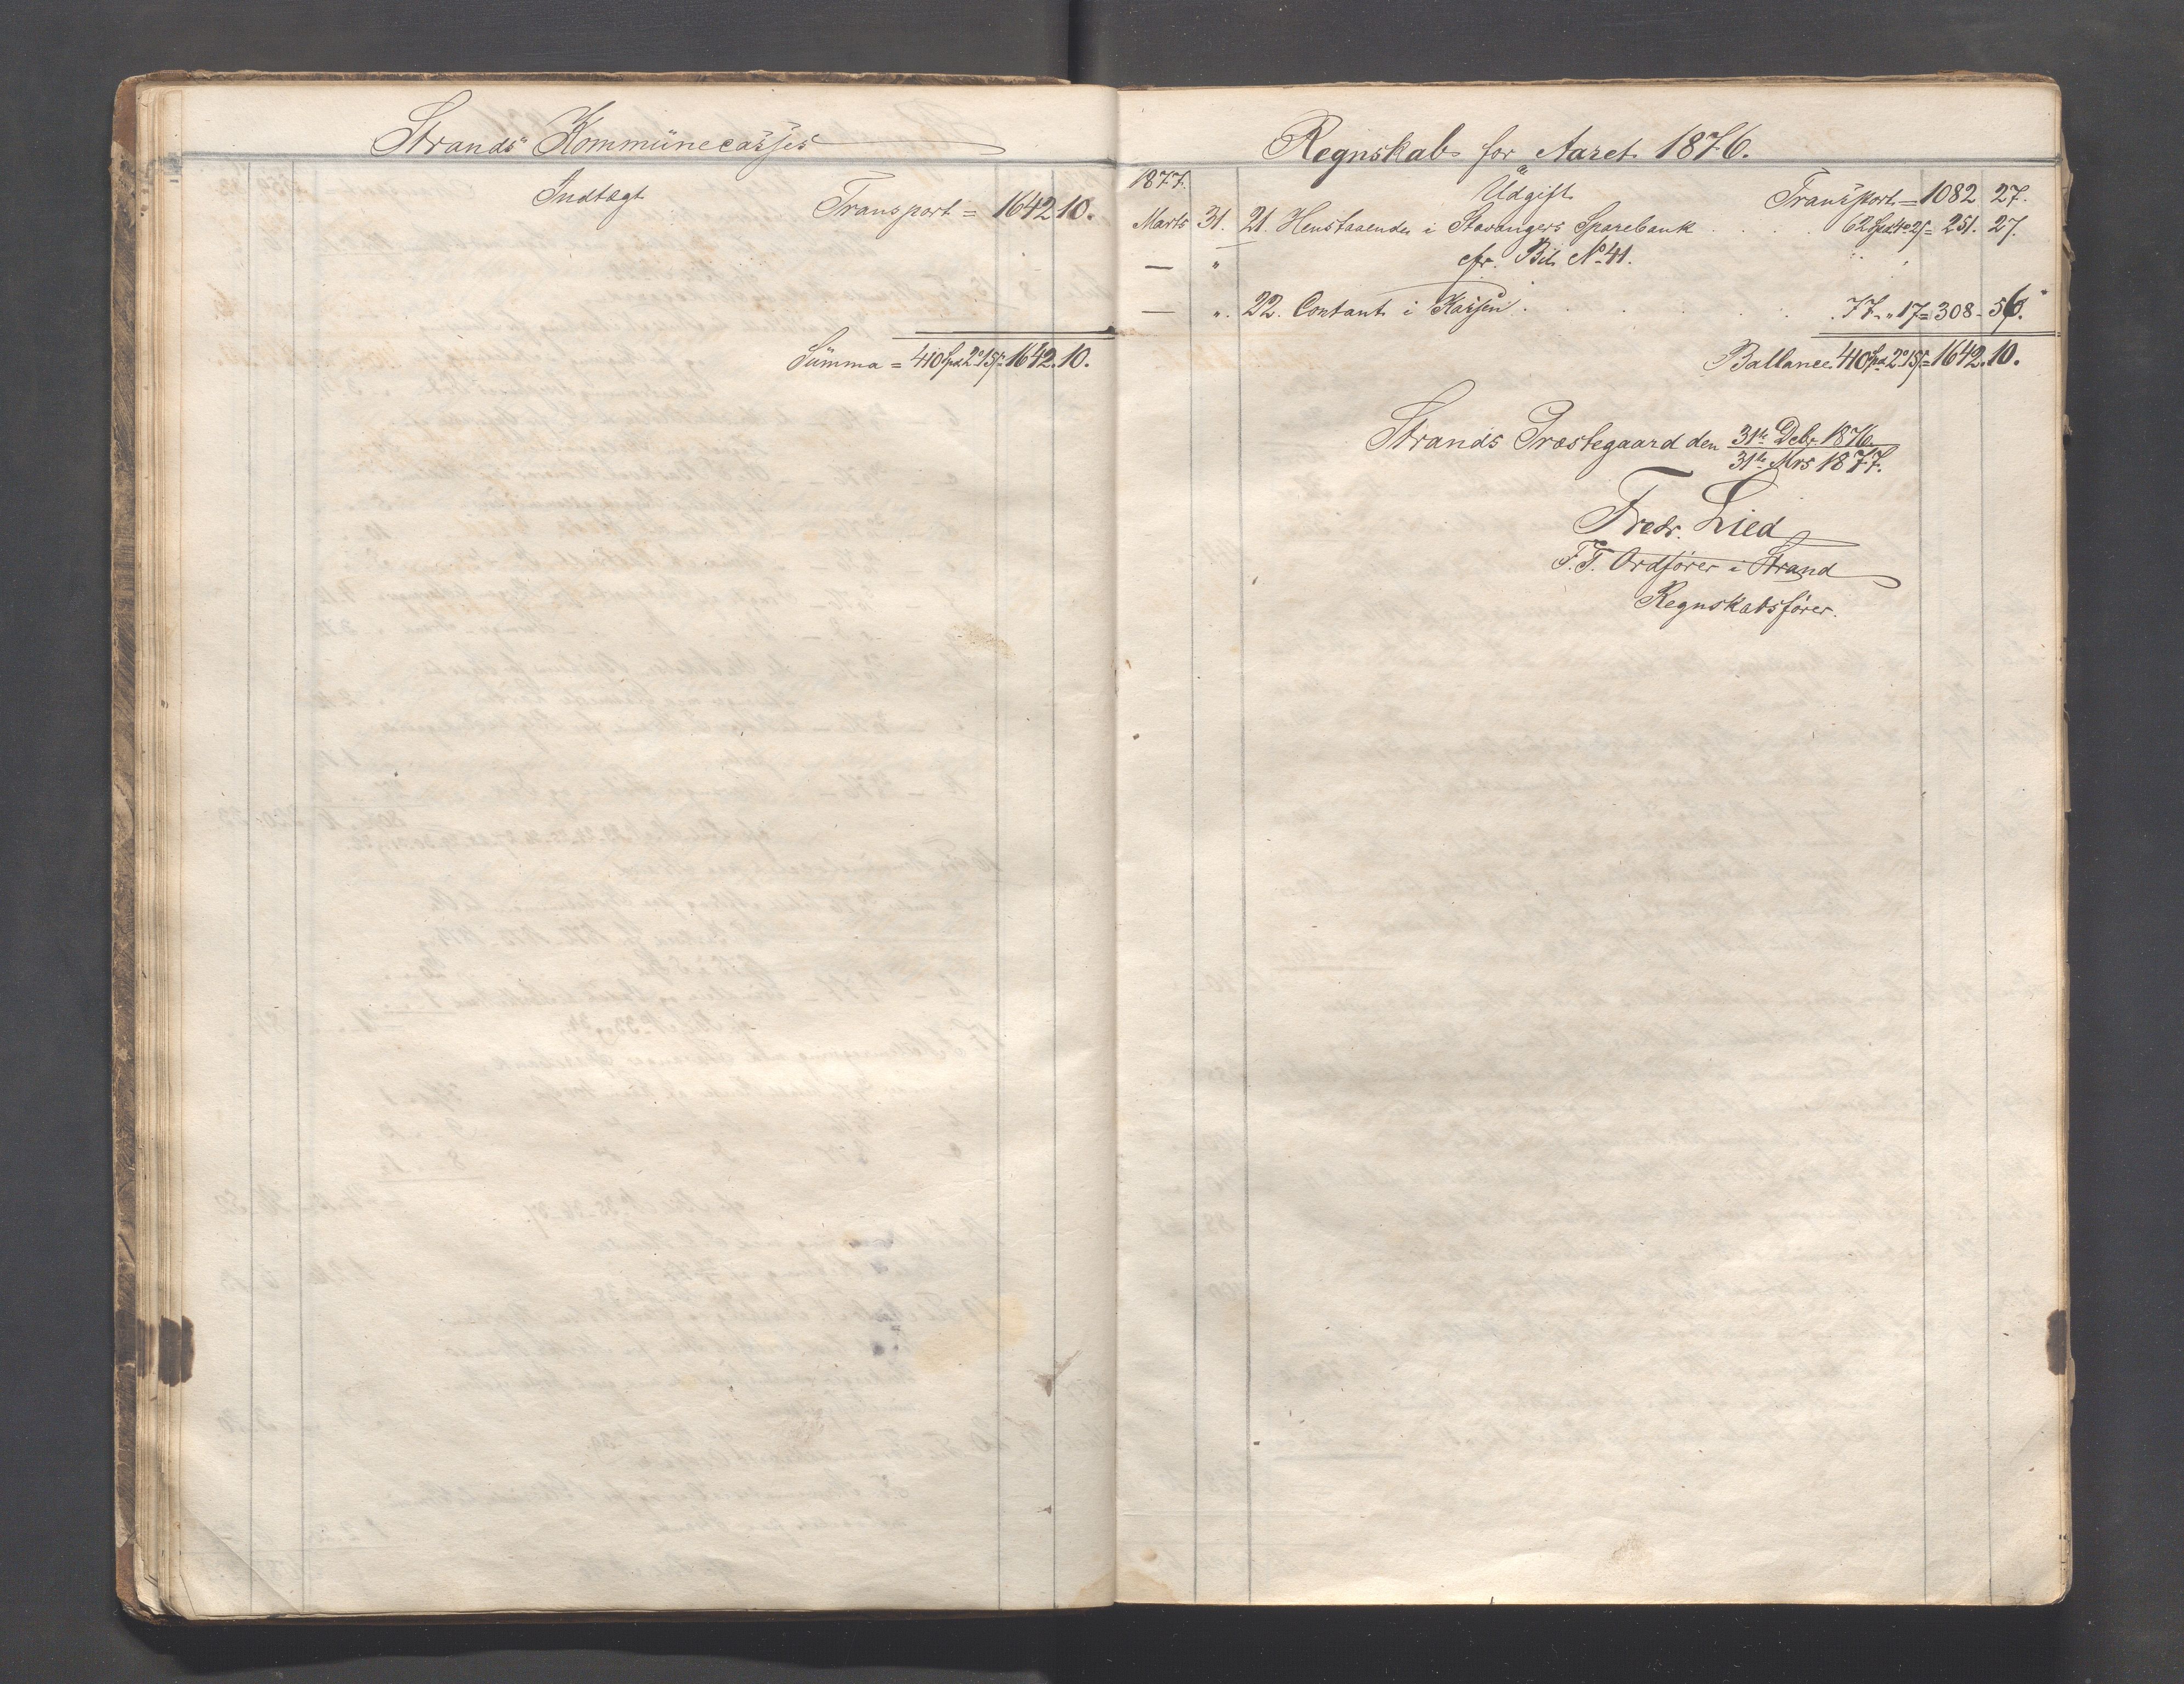 Strands Kommünecasses
Indtægt
Transport = 1642 10.
Sümma = 410 Spd 2 15 s = 1642. 10.
Regnskab for Aaret 1876.
1877.
Udgift
Transport = 1082 27.
Marts 31. 21. Henstaaende i Stavangers Sparebank . . . 62 Spd 4 25 = 251. 27.
— " cfr. Bil. No 41.
— " . 22. Contant i Kassen . . . . . . 77 - " 17 = 308 - 56.
Ballance 410 Spd 2 15 s = 1642. 10.
Strands Præstegaard den 31te Debr. 1876
31te Mrs 1877.
Fredr. Lied
F.T. Ordfører i Strand
Regnskabsfører.